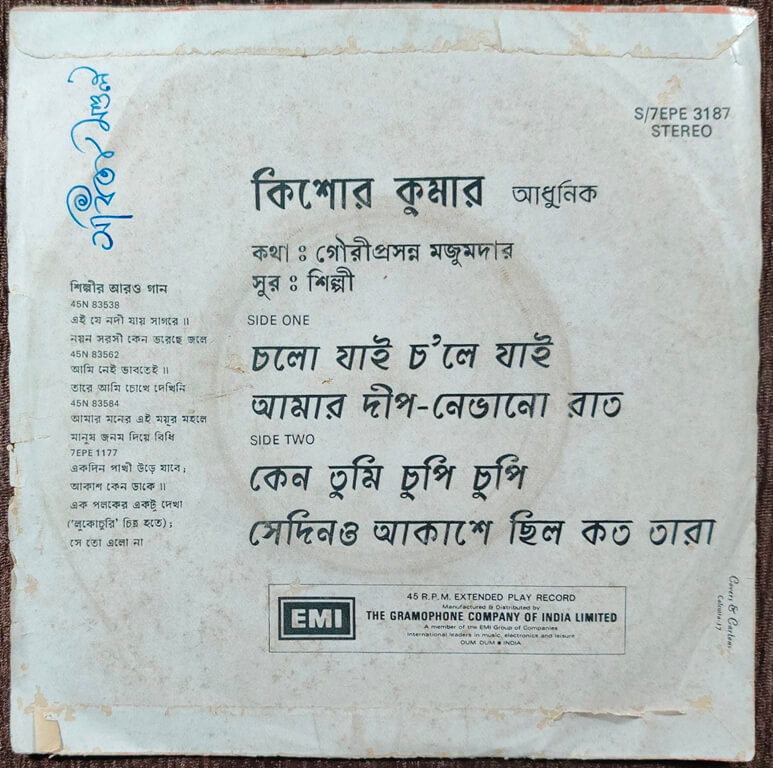 S/7EPE 3187
STEREO
কিশোর কুমার আধুনিক
কথা : গৌরীপ্রসন্ন মজুমদার
সুর : শিল্পী
SIDE ONE
চলো যাই চ'লে যাই
আমার দীপ-নেভানো রাত
SIDE TWO
কেন তুমি চুপি চুপি
সেদিনও আকাশে ছিল কত তারা
শিল্পীর আরও গান
45N 83538
এই যে নদী যায় সাগরে ॥
নয়ন সরসী কেন ভরেছে জলে
45N 83562
আমি নেই ভাবতেই ॥
তারে আমি চোখে দেখিনি
45N 83584
আমার মনের এই ময়ূর মহলে
মানুষ জনম দিয়ে বিধি
7EPE 1177
একদিন পাখী উড়ে যাবে ;
আকাশ কেন ডাকে ॥
এক পলকের একটু দেখা
('লুকোচুরি' চিত্র হতে) ;
সে তো এলো না
EMI
45 R.P.M. EXTENDED PLAY RECORD
Manufactured & Distributed by
THE GRAMOPHONE COMPANY OF INDIA LIMITED
A member of the EMI Group of Companies
International leaders in music, electronics and leisure
DUM DUM ● INDIA
Covers & Cartons
Calcutta-17
মণ্ডল